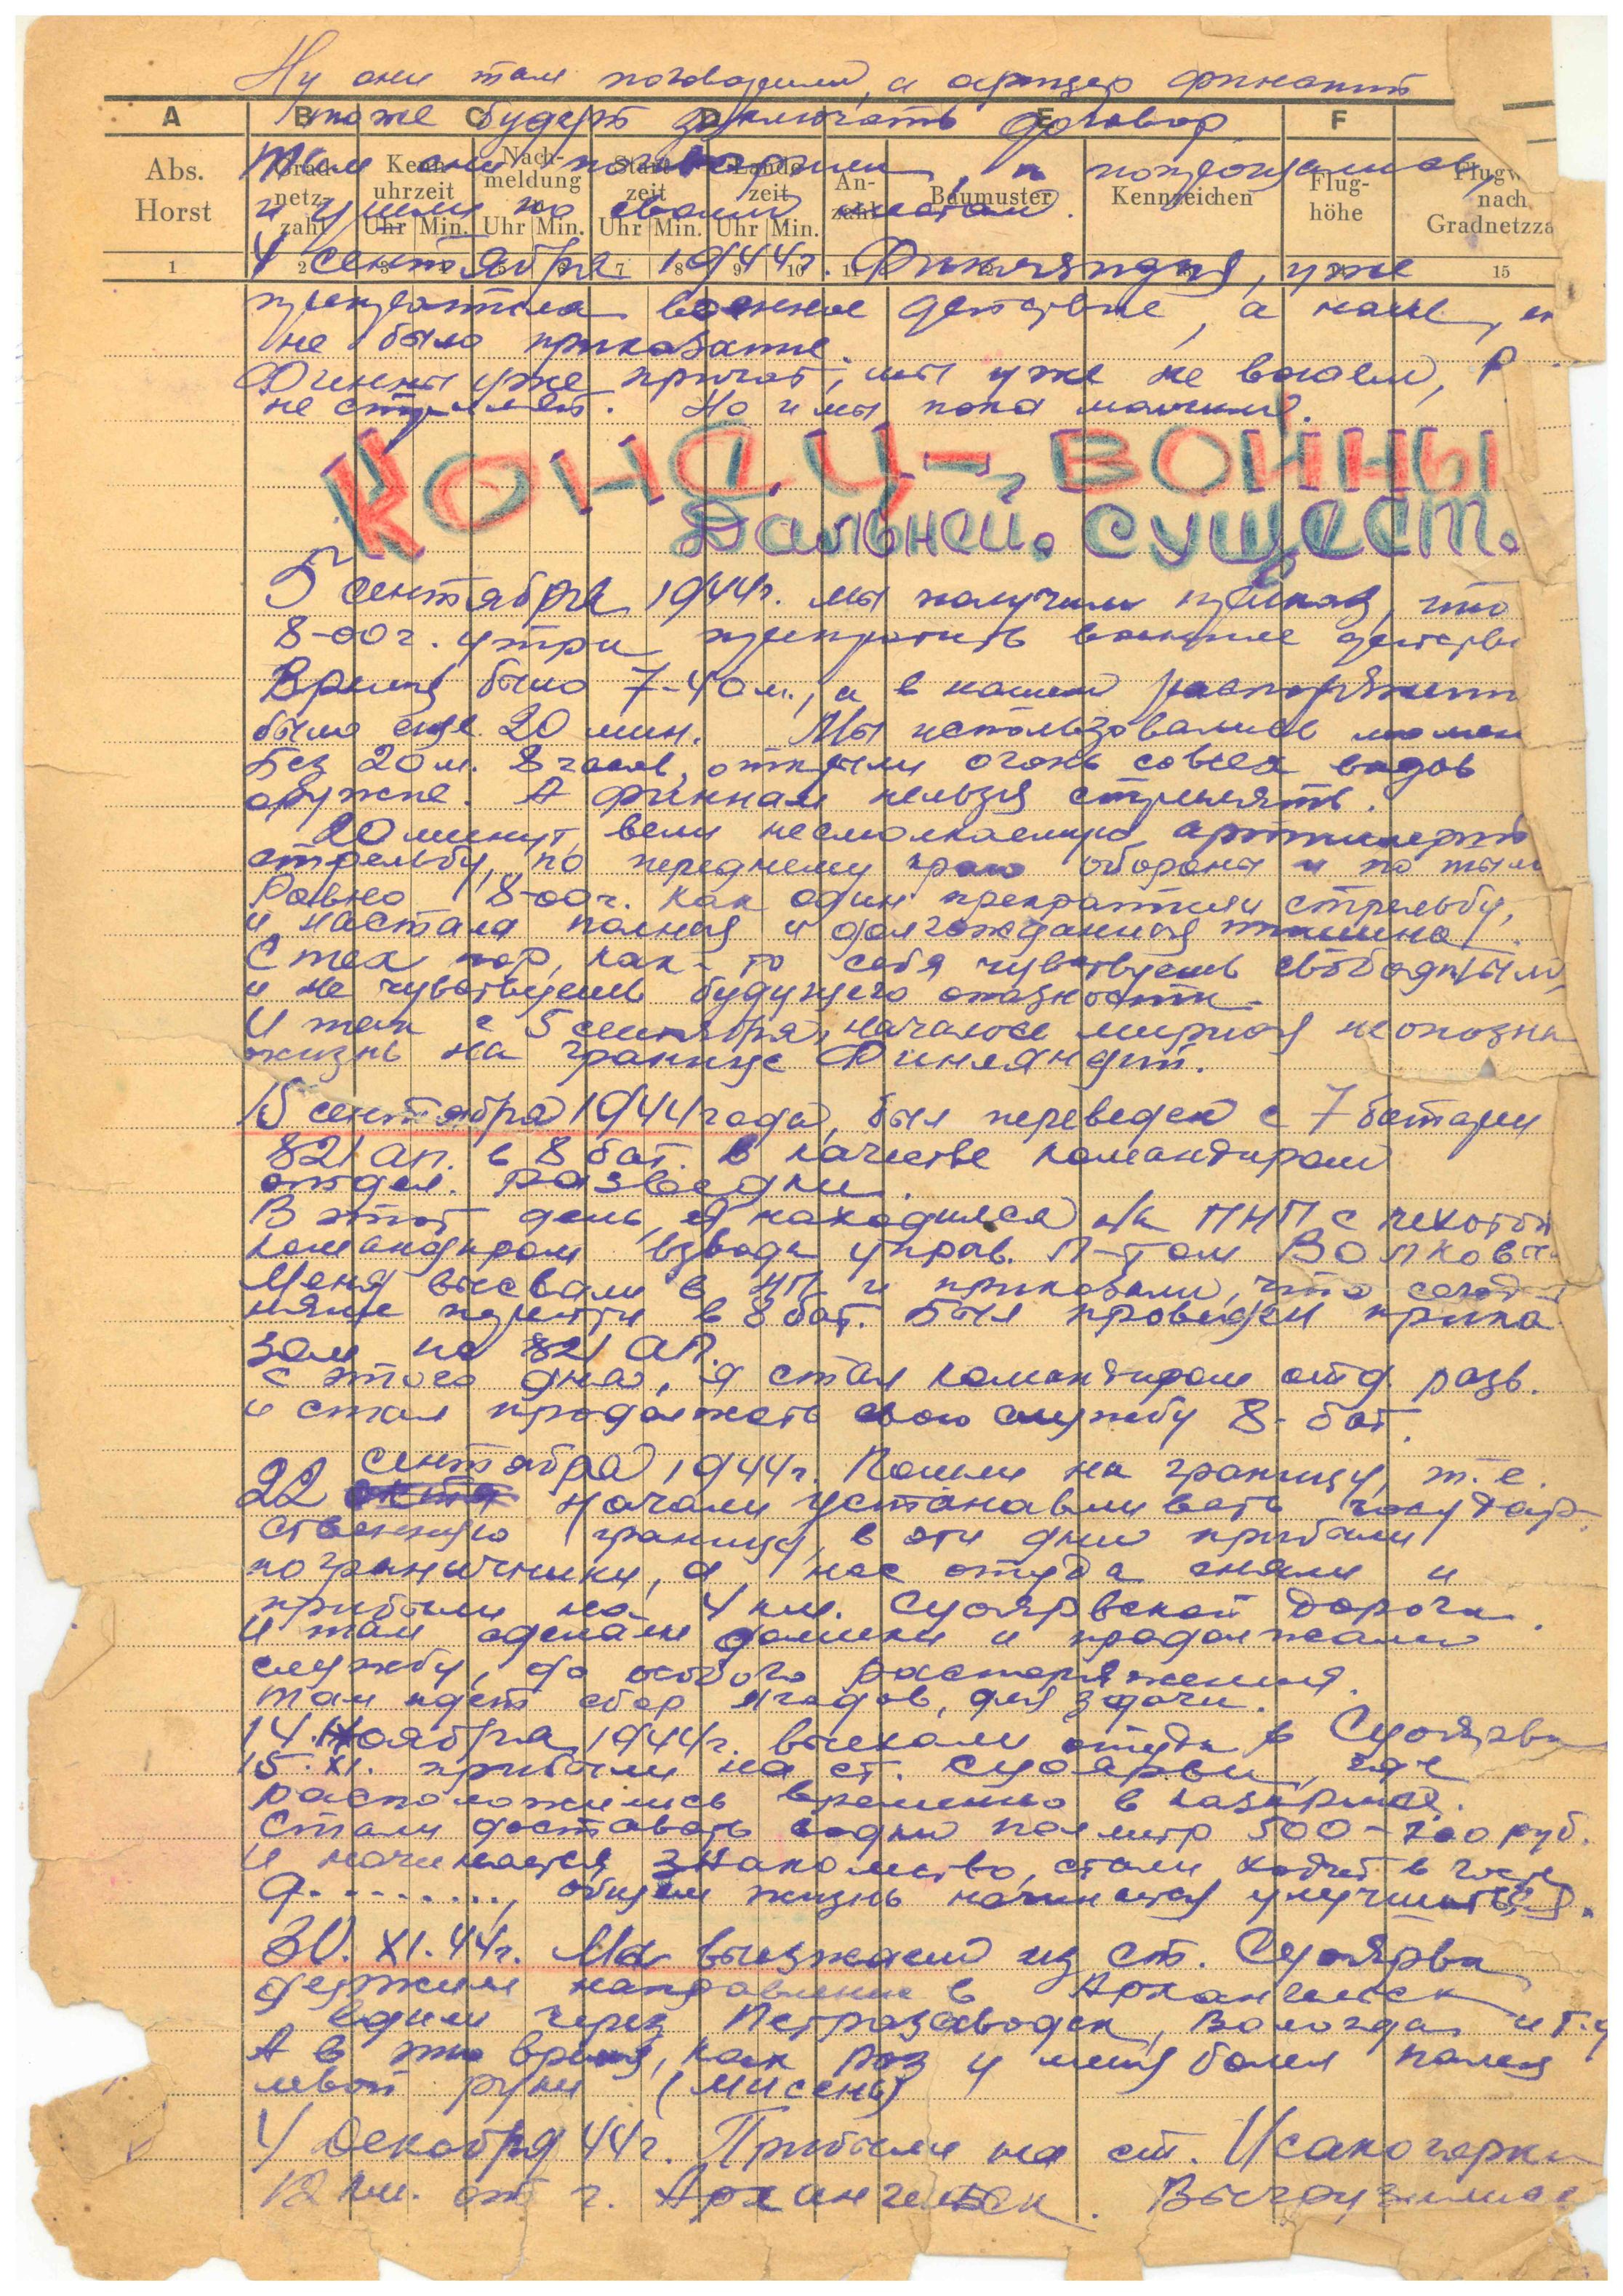 Ну они там поговорили, а офицер финский
тоже будет заключать договор
A B C D E F
Abs. Horst
Grad-netz-zahl
Kenn-uhrzeit Uhr Min.
Nach-meldung Uhr Min.
Start-zeit Uhr Min.
Lande-zeit Uhr Min.
An-zahl
Baumuster
Kennzeichen
Flug-höhe
nach Gradnetzza
Там они поговорили, и попрощались
и ушли по своим местам.
1 2 3 4 5 6 7 8 9 10 11 15
4 сентября 1944г. Финляндия, уже
прекратила военные действие, а нам,
не было приказание.
Финны уже кричат, мы уже не воюем, Р
не стреляет. Но и мы пока молчим.
КОНЕЦ-, ВОЙНЫ
Дальней. сущест.
5 сентября 1944г. мы получили приказ, что
8-00 г. утра прекратить военные действи
Время было 7-40 м., а в нашем распоряжени
было еще 20 мин. Мы использовались момен
Без 20 м. 8 часов, открыли огонь совсех видов
оружие. А финнам нельзя стрелять.
20 минут, вели несмолкаемую артилерий
стрельбу, по переднему краю обороны и по тыла
Равно 8-00 г. как один прекратили стрельбу,
и настала полная и долгожданная тишина.
С тех пор, как-то себя чувствуешь свободным,
и не чувствуешь будущего опасности.
И так с 5 сентября, началось мирная неопозна
жизнь на границе Финляндий.
15 сентября 1944 года, был переведен с 7 батареи
821 ап. в 8 бат. в качестве командиром
отдел. разведки.
В этот день, я находился на ПНП с пехотой
командиром взвода управ. Л-том Волковы
Меня вызвали в НП и приказали, что сегод-
няже перейти в 8 бат. Был проведен прика
зам по 821 АП.
С этого дня, я стал командиром отд. разв.
и стал продолжать свою службу 8-бат.
22 сентября 1944г. Пошли на границу, т.е.
начали устанавливать государ-
ственную границу, в эти дни прибыли
пограничники, а нас оттуда сняли и
прибыли на 4 км. Суоярвской дороги.
И там сделали домики и продолжали
службу, до особого распоряжения.
Там идет сбор ягодов, для здачи.
14. Ноября 1944г. выехали оттуда в Суоярви
15. XI. прибыли на ст. Суоярви, где
расположились временно в казармах.
Стали доставать водки пол литр 500-700 руб.
И начинается знакомство, стали ходить в гости
а........., общем жизнь начинается улучшиться.
30. XI. 44г. Мы выезжаем из ст. Суоярви
держим направление в Архангельск
едим через Петразаводск, Вологда и т.д
А в это время, как раз у меня болел палец
левой руки (мисены)
4 Декабря 44г. Прибыли на ст. Исакогорки
12 км. от г. Архангельск. Выгрузились